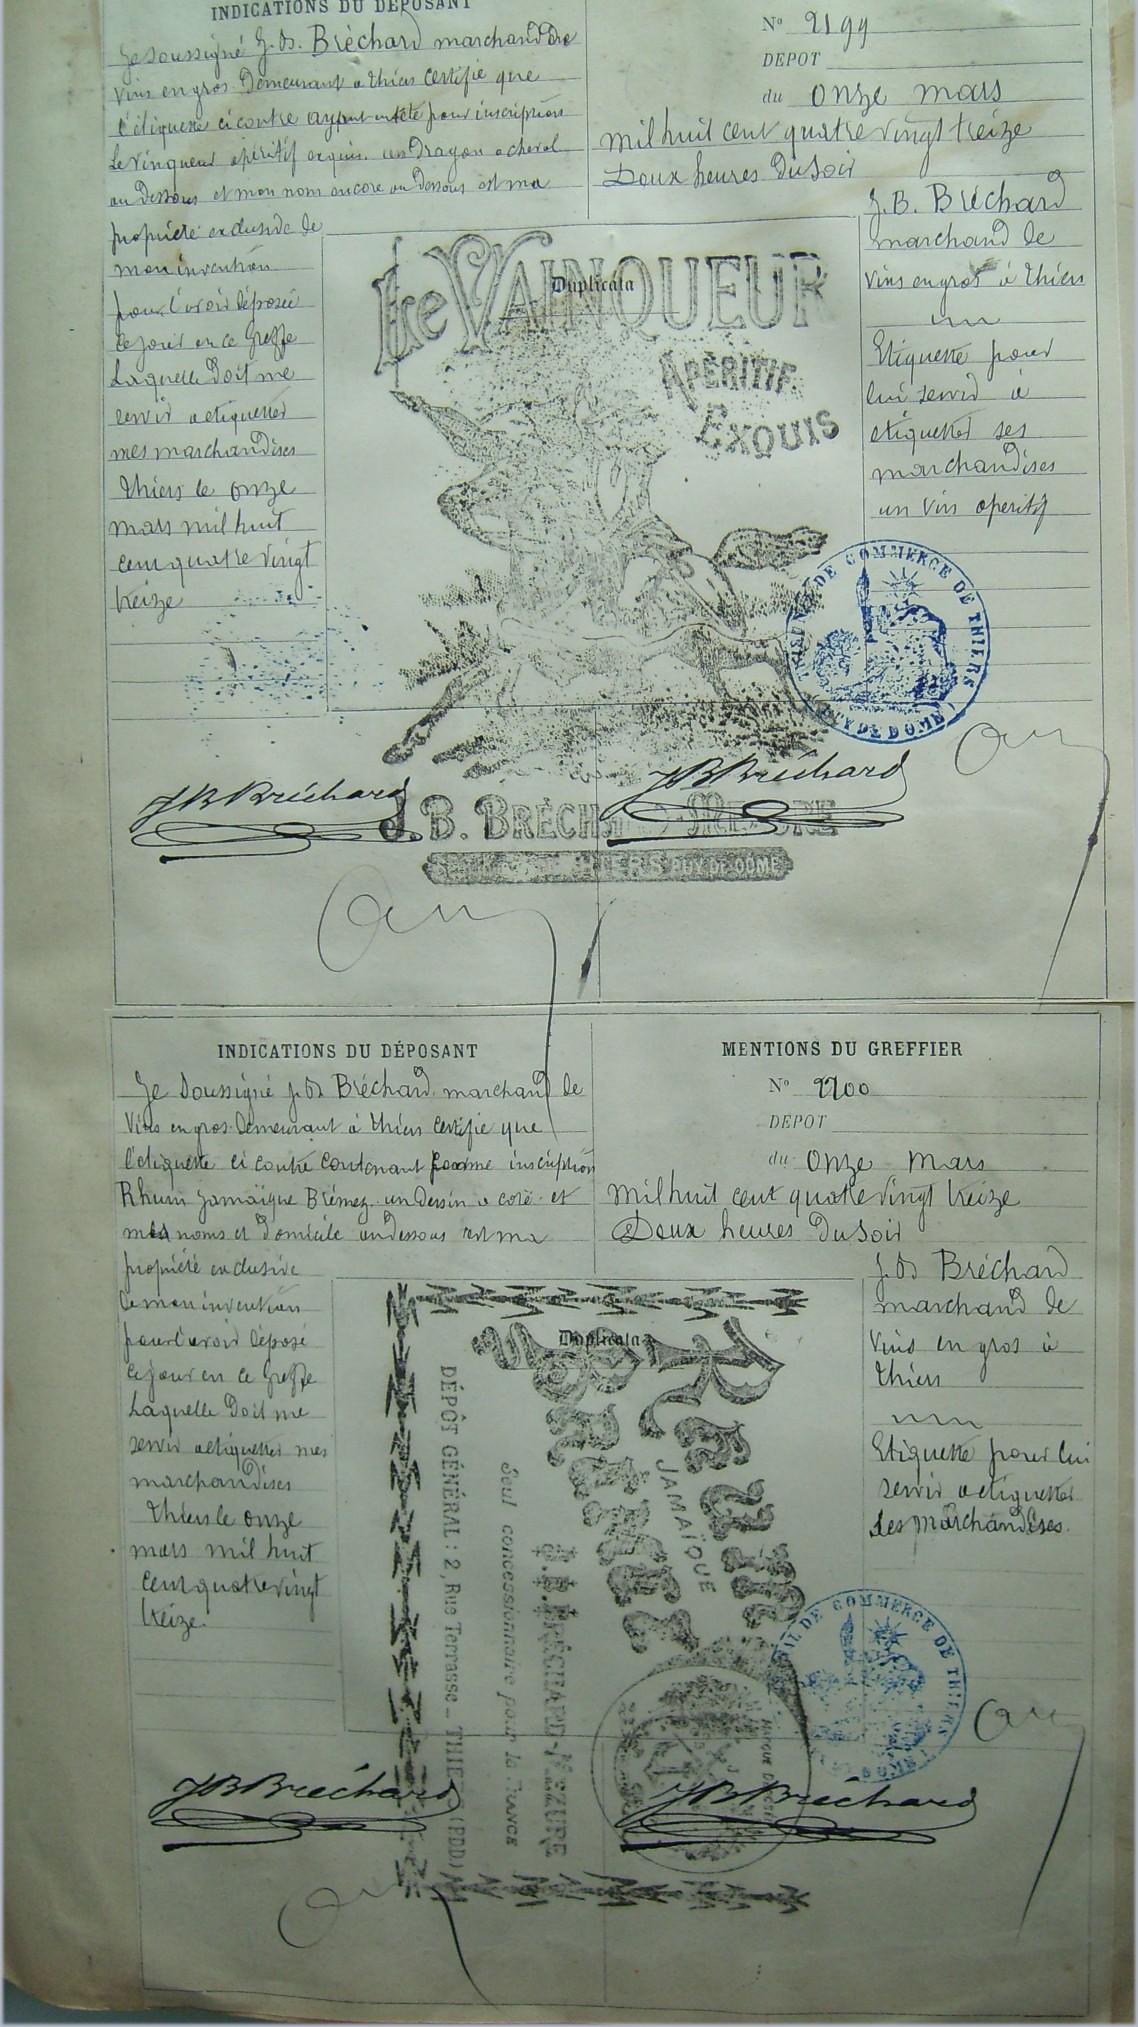 INDICATIONS DU DÉPOSANT
Je soussigné J. B. Bréchard marchand de
vins en gros Demeurant a thiers certifie que
l'étiquette ci contre ayant entête pour inscription
Le vinqueur apéritif exquis un Dragon a cheval
au Dessous et mon nom encore au Dessous est ma
propriété exclusive de
mon invention
pour l'avoir déposée
ce jour en ce Greffe
Laquelle Doit me
servir a etiqueter
mes marchandises
thiers le onze
mars mil huit
cent quatre vingt
treize
N° 2199
DEPOT
du onze mars
mil huit cent quatre vingt treize
Deux heures Du Soir
J. B. Bréchard
marchand de
vins en gros à thiers
Etiquette pour
lui servir à
etiqueter ses
marchandises
un vin aperitif
Duplicata
Le VAINQUEUR
APÉRITIF
EXQUIS
TRIBUNAL DE COMMERCE DE THIERS
(PUY DE DOME)
JB Bréchard
JB Bréchard
J. B. BRÉCHARD-MEZURE
THIERS PUY-DE-DÔME
INDICATIONS DU DÉPOSANT
Je Soussigné J. B. Bréchard marchand de
Vins en gros Demeurant à thiers certifie que
l'etiquette ci contre contenant comme inscription
Rhum Jamaïque Brémez un Dessin a coté et
mes noms et Domicile au dessous est ma
propriété exclusive
de mon invention
pour l'avoir déposé
ce jour en ce Greffe
Laquelle Doit me
servir a etiqueter mes
marchandises
thiers le onze
mars mil huit
cent quatre vingt
treize.
MENTIONS DU GREFFIER
N° 2200
DEPOT
du Onze Mars
Mil huit cent quatre vingt treize
Deux heures Du Soir
J. B. Bréchard
marchand de
vins en gros à
thiers
Etiquette pour lui
servir a etiqueter
ses marchandises.
Duplicata
RHUM
JAMAÏQUE
J. B. BRÉCHARD-MEZURE
Seul concessionnaire pour la FRANCE
DÉPÔT GÉNÉRAL : 2, Rue Terrasse – THIERS (P.D.D.)
MARQUE DÉPOSÉE
TRIBUNAL DE COMMERCE DE THIERS
(PUY DE DOME)
JB Bréchard
JB Bréchard